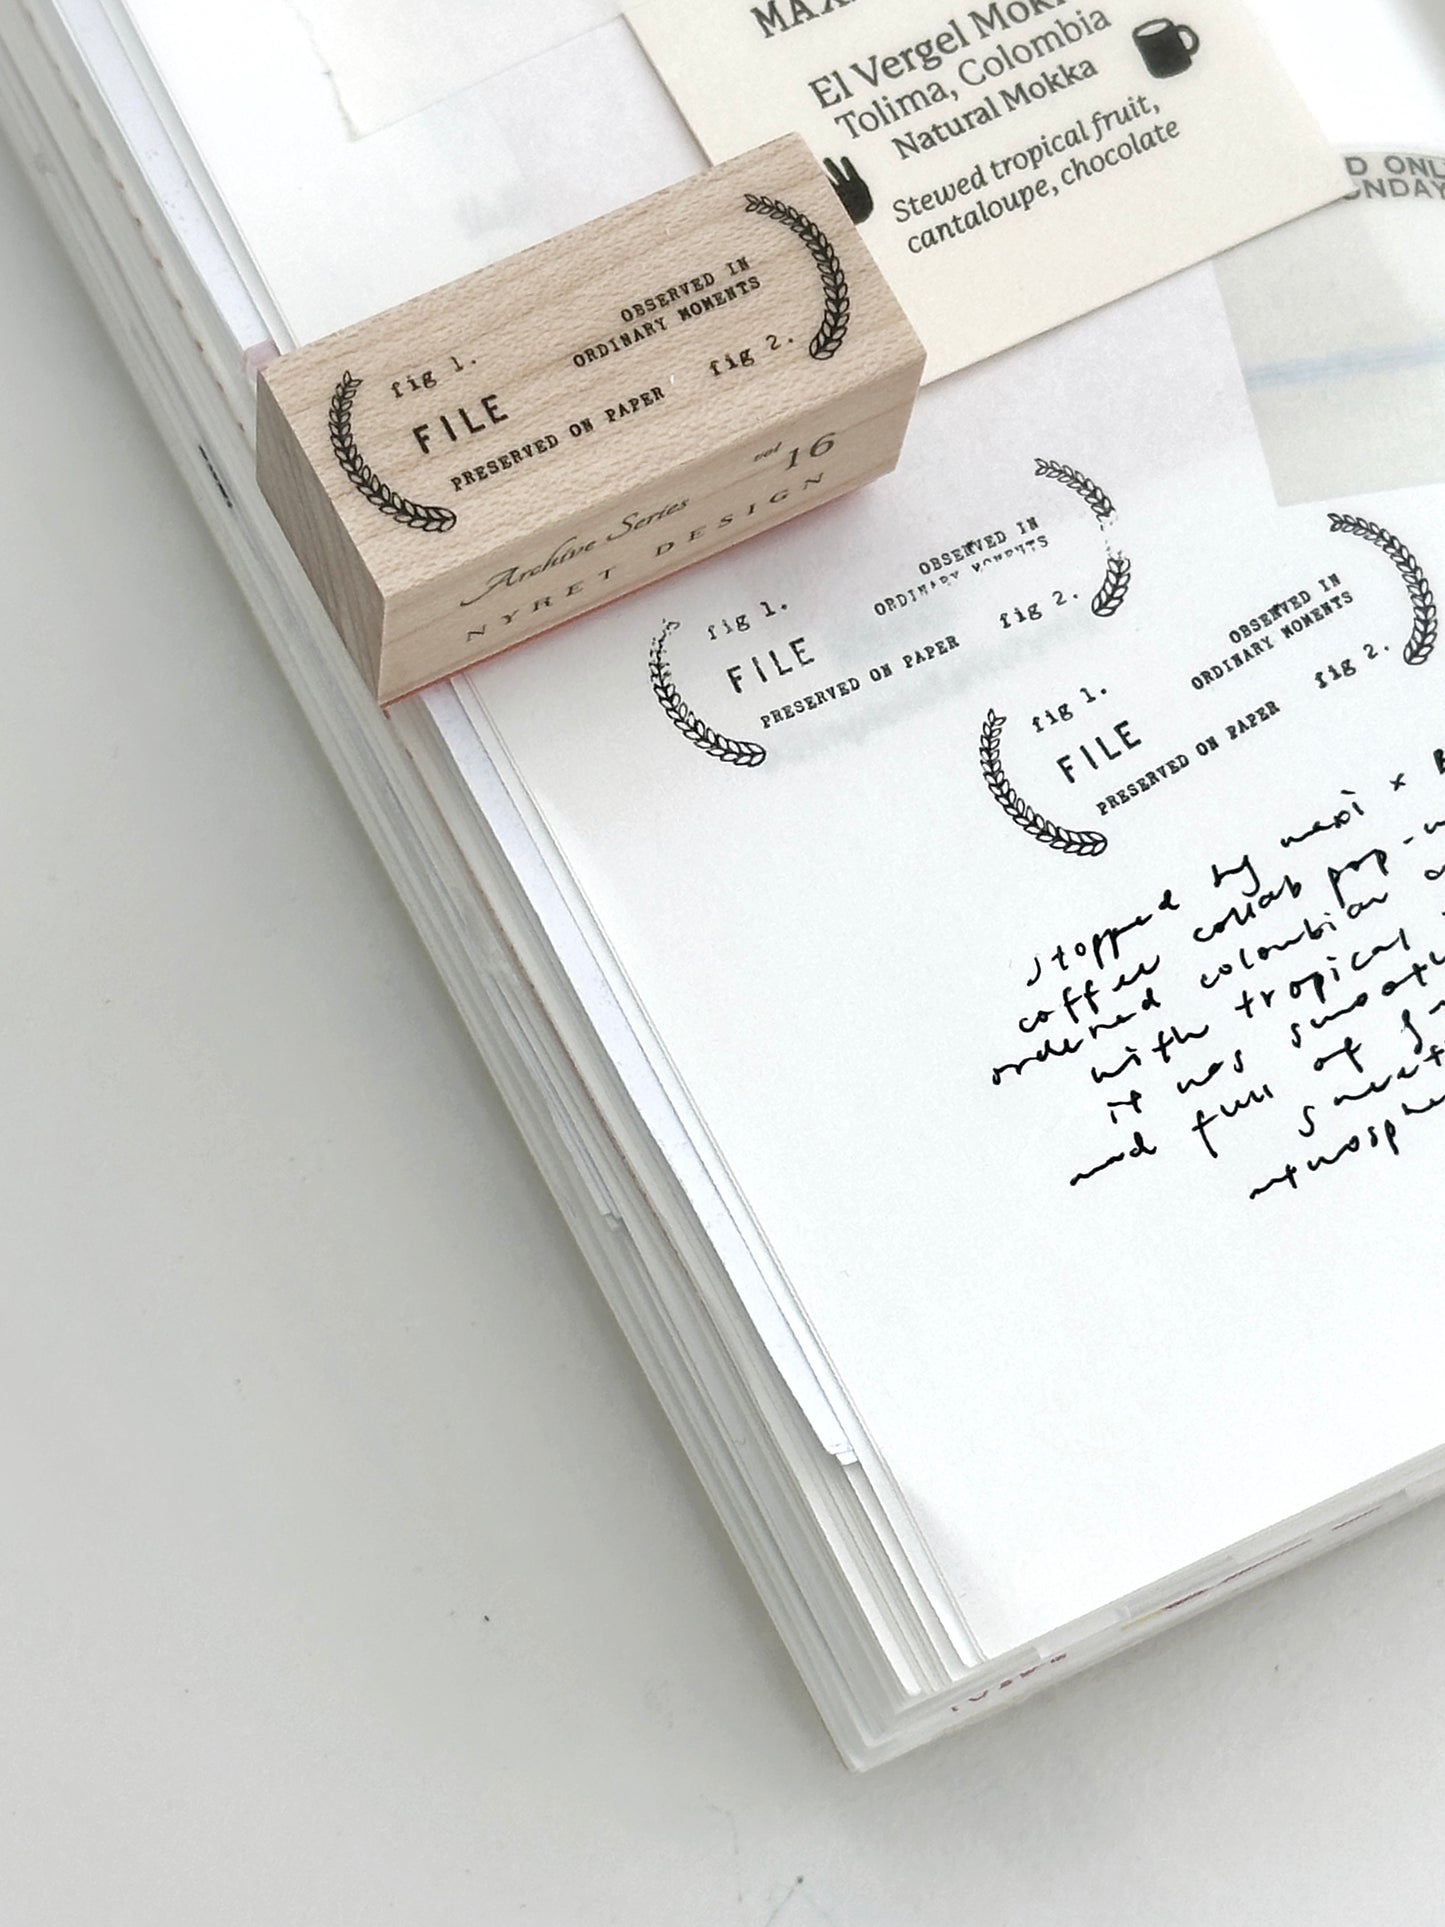 El Vergel
Tolima, Colombia
Natural Mokka
Stewed tropical fruit,
cantaloupe, chocolate
D ONL
NDAY
OBSERVED IN
ORDINARY MOMENTS
fig 1.
fig 2.
FILE
PRESERVED ON PAPER
Archive Series
vol 16
NYRET DESIGN
OBSERVED IN
ORDINARY MOMENTS
fig 1.
fig 2.
FILE
PRESERVED ON PAPER
OBSERVED IN
ORDINARY MOMENTS
fig 1.
fig 2.
FILE
PRESERVED ON PAPER
stopped by maxi x
coffee collab pop-
ordered colombian
with tropical
it was smooth
and full of
sweet
atmosphe